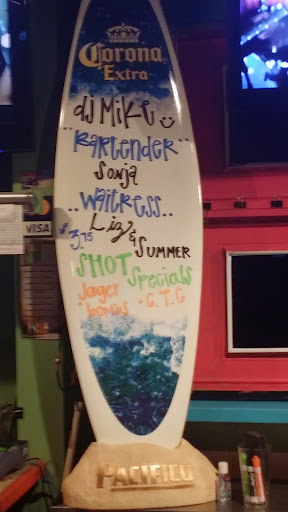 Corona
Extra
dj Mike
Bartender
Sonja
Waitress
Liz & Summer
$3.75
SHOT Specials
Jager bombs
G.T.C
VISA
PACIFICO